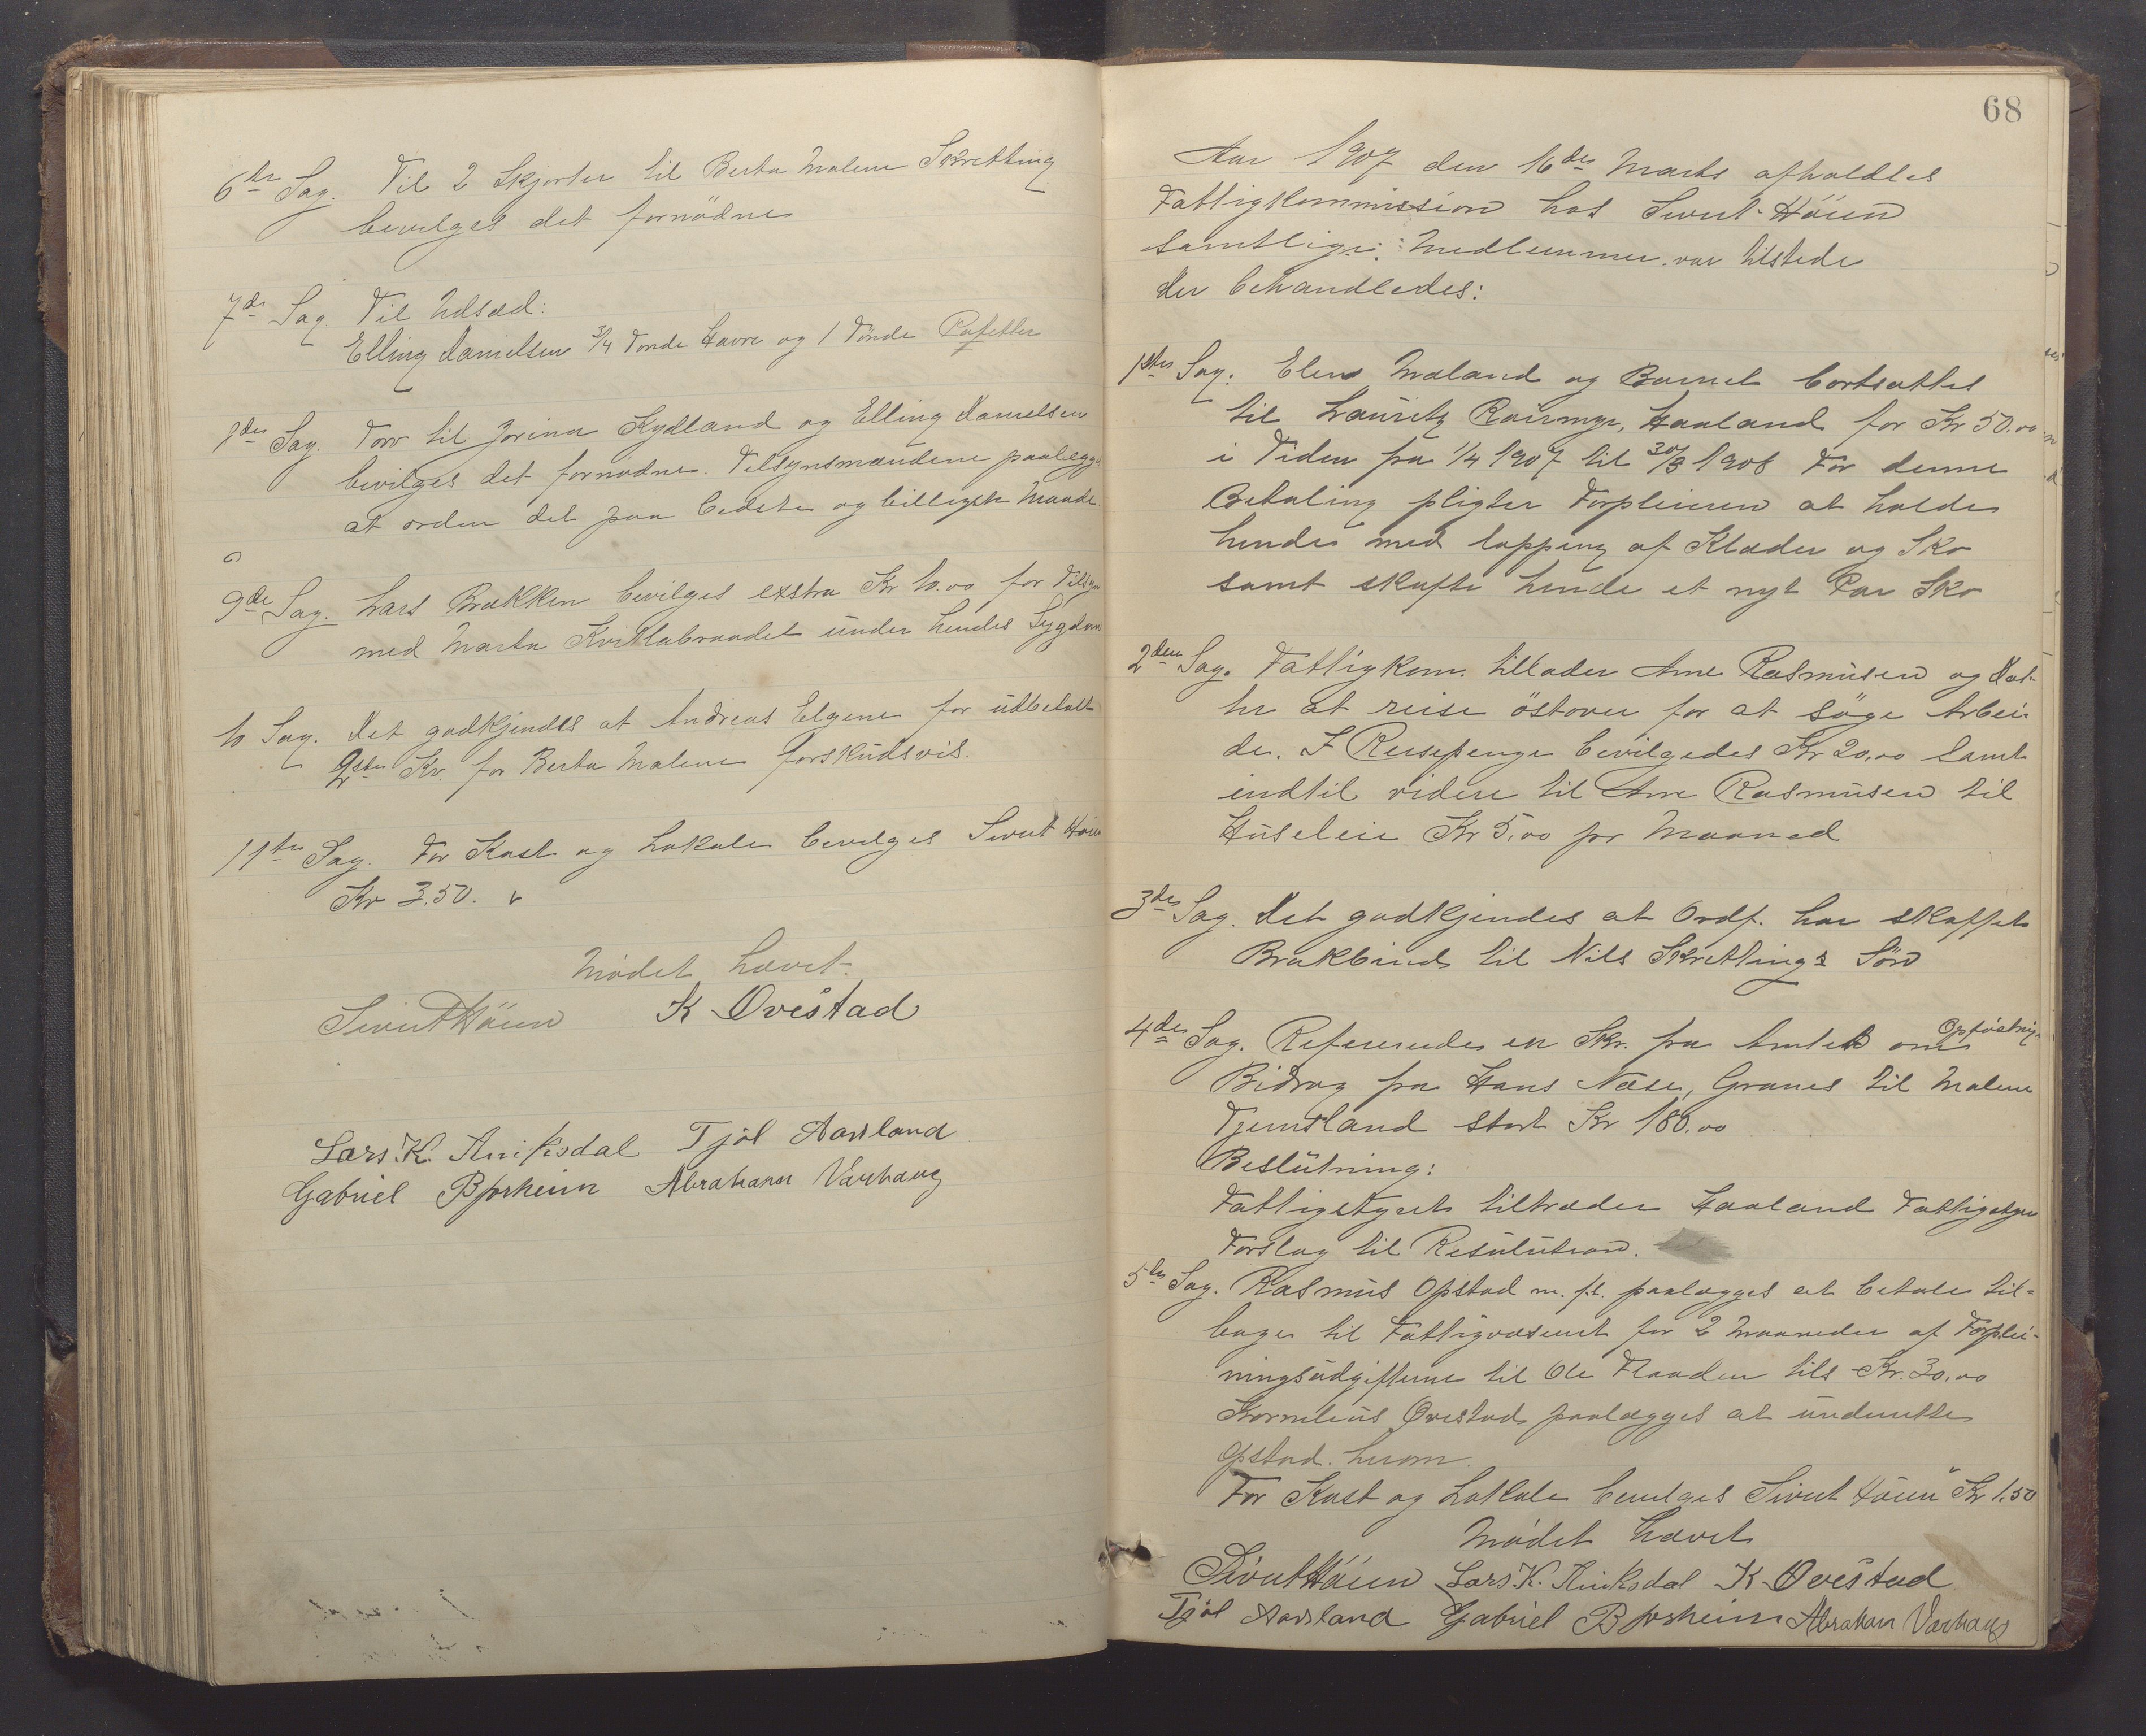 6te Sag. Til 2 Skjorter til Berta Malene Skretting
bevilges det fornödne
7de Sag. Til Udsæd:
Elling Danielsen 3/4 Tönde Havre og 1 Tönde Poteter
8de Sag. Torv til Jorina Kydland og Elling Danielsen
bevilges det fornödne. Tilsynsmændene paalægges
at ordne det paa bedste og billigste Maade.
9de Sag. Lars Brækken bevilges extra Kr 10.00 for Tilsyn
med Marta Kvitlabraadet under hendes Sygdom
10 Sag. Det godkjendes at Andreas Elgene for udbetalt
2det Kv. for Berta Malene forskudsvis.
11te Sag. For Kost og Lokale bevilges Sivert Höien
Kr 3.50.
Mödet hævet.
Sivert Höien K Ovestad
Lars. K. Aniksdal Tjöl Aarsland
Gabriel Bjorheim Abraham Varhaug
68
Aar 1907 den 16de Marts afholdtes
Fattigkommission hos Sivert Höien
samtlige Medlemmer var tilstede
der behandledes:
1ste Sag. Elen Mæland og Barnet bortsattes
til Lauritz Rosmyr, Haaland for Kr 50.00
i Tiden fra 1/4 1907 til 30/3 1908 For denne
Betaling pligter Forpleieren at holde
hende med lapping af Klæder og Sko
samt skaffe hende et nyt Par Sko
2den Sag. Fattigkom. tillader Arne Rasmusen og Dat-
ter at reise östover for at söge Arbei-
de. I Reisepenge bevilgedes Kr 20,00 samt
indtil videre til Arne Rasmusen til
Husleie Kr 5,00 pr Maaned
3de Sag. Det godkjendes at Ordf. har skaffet
Brakbind til Nils Skrettings Sön
4de Sag. Refereredes en Skr. fra Amtet om Opfostrings
Bidrag fra Hans Næse, Granes til Malene
Tjemsland stort Kr 180.00
Beslutning:
Fattigstyret tiltræder Haaland Fattigstyre
Forslag til Resulution.
5te Sag. Rasmus Opstad m. fl. paalægges at betale til-
bage til Fattigvæsenet for 2 Maaneder af Forplei-
ningsudgifterne til Ole Flaaden tils Kr. 30.00
Kornelius Ovestad paalægges at underrette
Opstad herom.
For Kost og Lokale bevilges Sivert Höien Kr 1.50
Mödet hævet
Sivert Höien Lars K. Aniksdal K Ovestad
Tjöl Aarsland Gabriel Bjorheim Abraham Varhaug